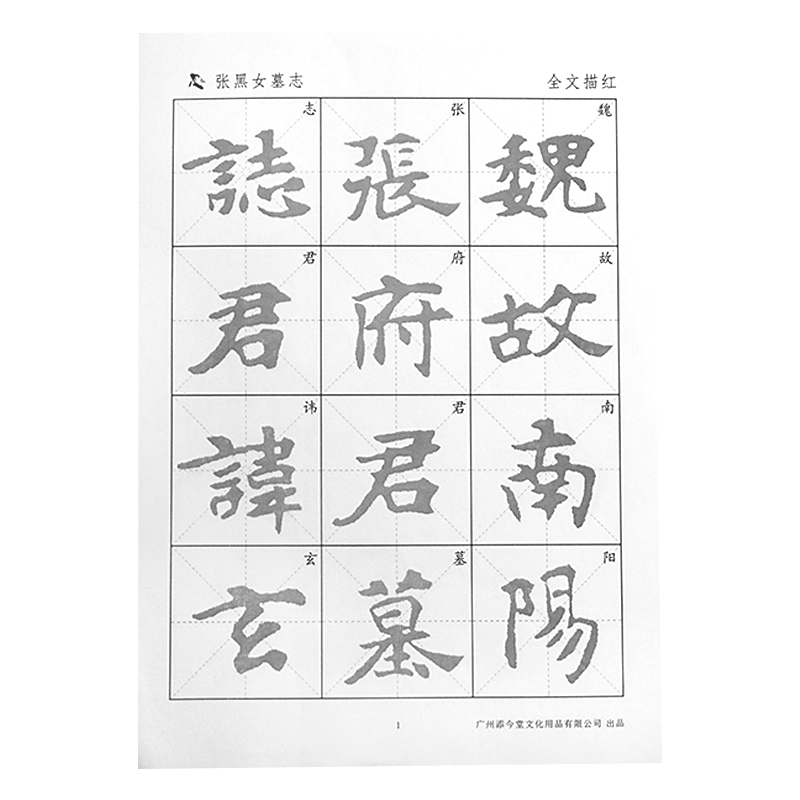 张黑女墓志
全文描红
魏 魏
故 故
南 南
阳 陽
张 張
府 府
君 君
墓 墓
志 誌
君 君
讳 諱
玄 玄
1
广州添今堂文化用品有限公司 出品